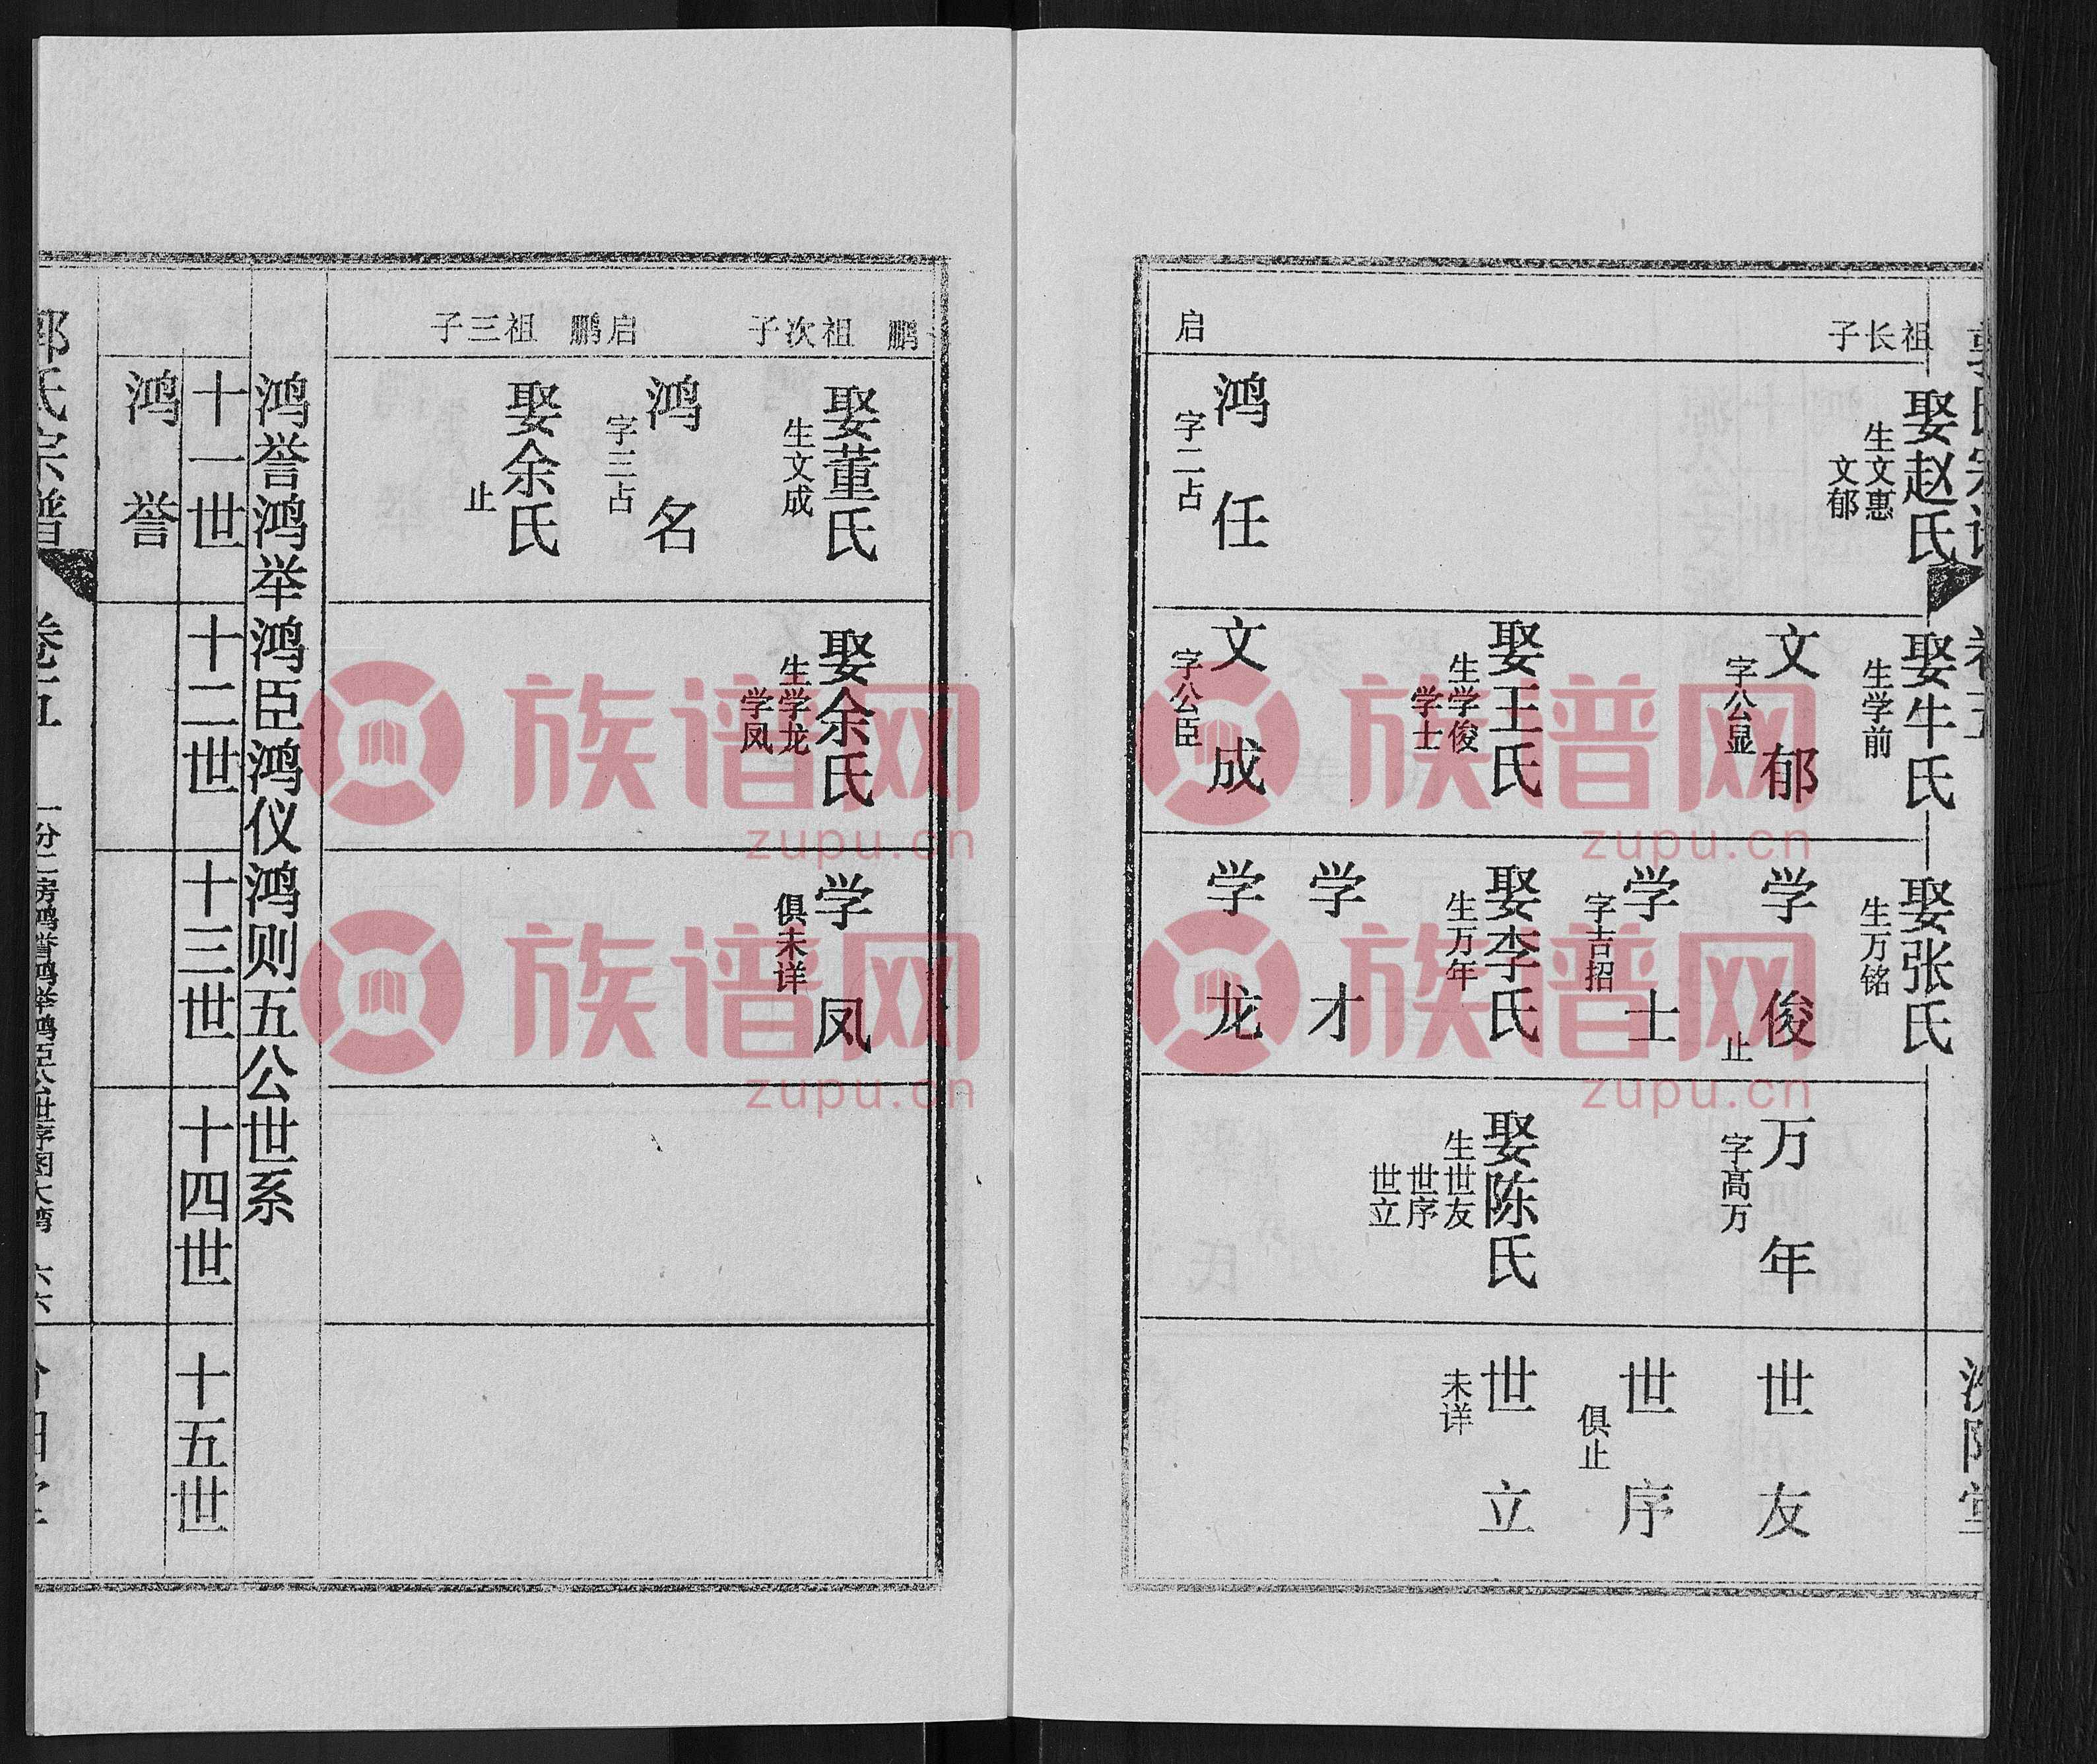 祖长子
启
娶赵氏
生文惠
文郁
鸿任
字二占
娶牛氏
生学前
文郁
字公显
娶王氏
生学俊
学士
文成
字公臣
娶张氏
生万铭
学俊
止
学士
字吉招
娶李氏
生万年
学才
学龙
万年
字高万
娶陈氏
生世友
世序
世立
世友
世序
俱止
世立
未详
鹏祖次子
启鹏祖三子
娶董氏
生文成
鸿名
字三占
娶余氏
止
娶余氏
生学龙
学凤
学凤
俱未详
鸿誉鸿举鸿臣鸿仪鸿则五公世系
十一世
十二世
十三世
十四世
十五世
鸿誉
郭氏宗谱
卷五
一份二房鸿誉鸿举鸿臣公世序图大湾
六六
族谱网
zupu.cn
族谱网
zupu.cn
族谱网
zupu.cn
族谱网
zupu.cn